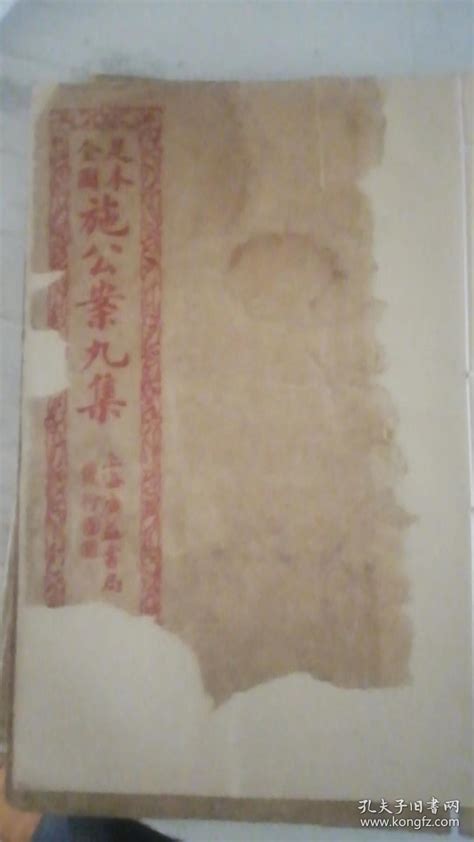 足本
全圖
施公案九集
上海廣益書局
發行
孔夫子旧书网
www.kongfz.com